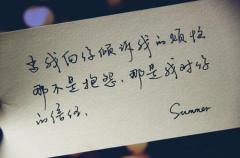 当我向你倾诉我的烦恼
那不是抱怨，那是我对你
的信任.
Summer